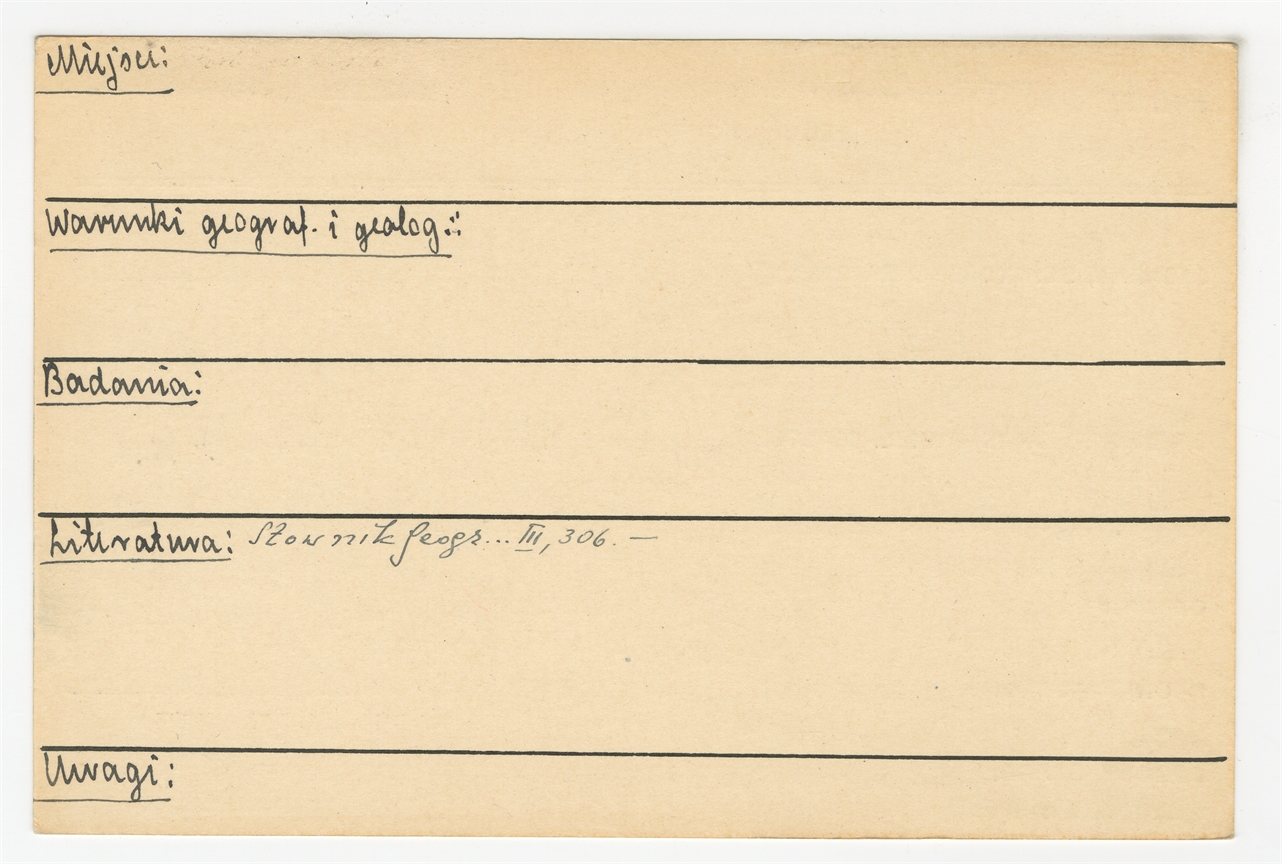 Miejsce:
Warunki geograf. i geolog.:
Badania:
Literatura: Słownik geogr... III, 306. —
Uwagi: